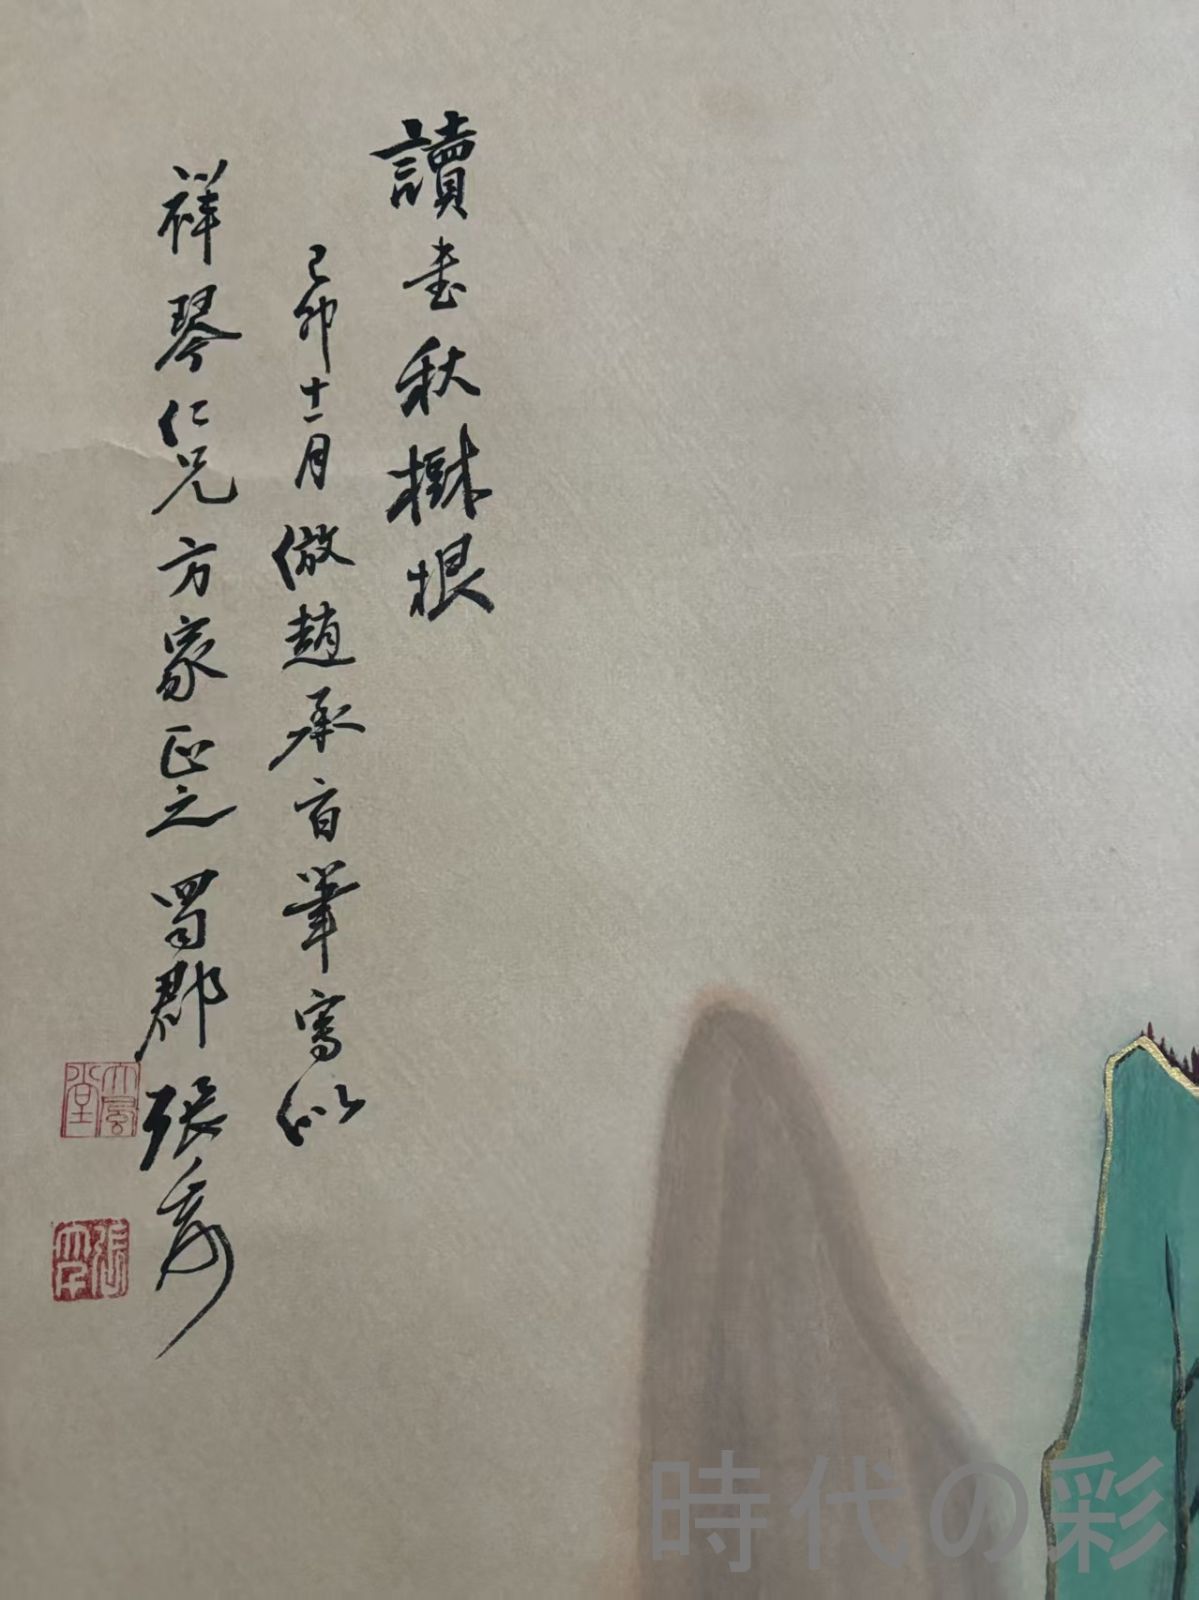 讀書秋樹根
己卯十一月倣趙承旨筆寫似
祥琴仁兄方家正之 蜀郡張爰
大風堂
張大千
時代の彩